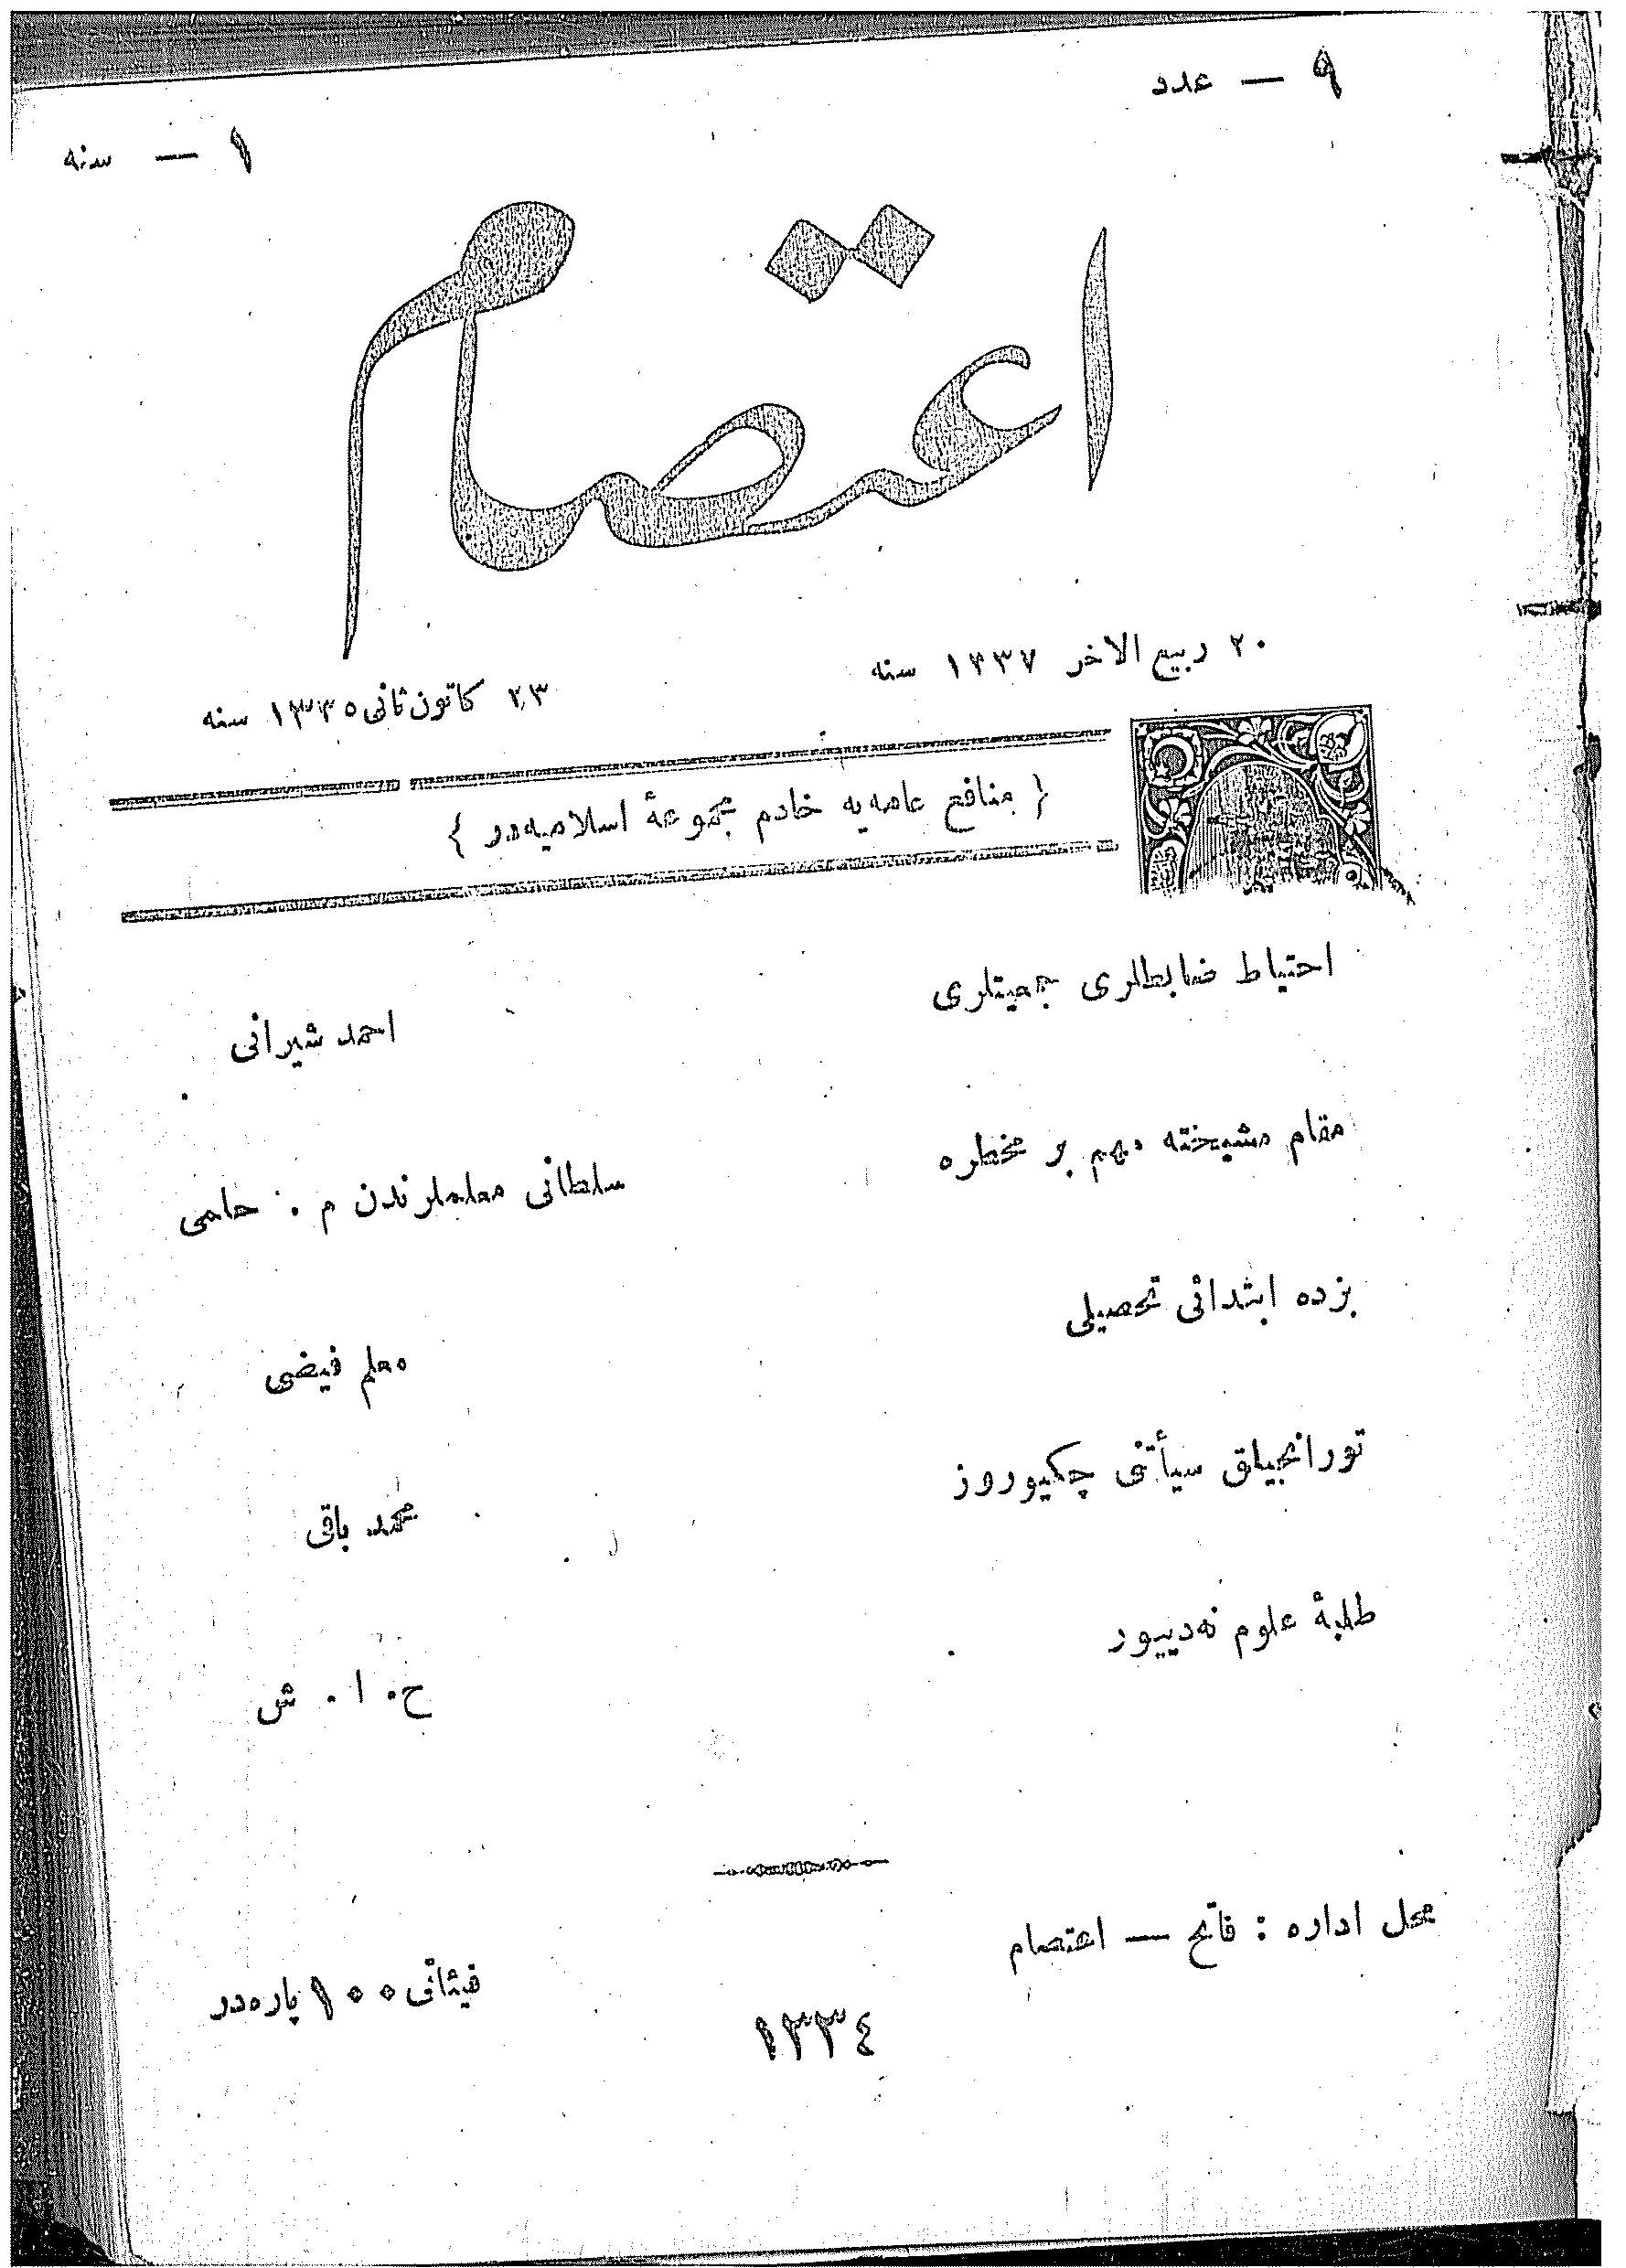 ٩ — عدد
١ — سنه
اعتصام
٢٠ ربيع الاخر ١٣٣٧ سنه
٢٣ كانون ثانی ١٣٣٥ سنه
{ منافع عامه‌يه خادم مجموعهٔ اسلاميه‌در }
احتياط ضابطلری جمعيتلری
احمد شيرانی
مقام مشيخته مهم بر مخطره
سلطانی معلملرندن م . حلمی
بزده ابتدائی تحصيلی
معلم فيضی
تورانجيلق سيأتنی چكيوروز
محمد باقی
طلبهٔ علوم نه‌دييور
ح . ا . ش
محل اداره : فاتح — اعتصام
فيئاتی ١٠٠ پاره‌در
١٣٣٤